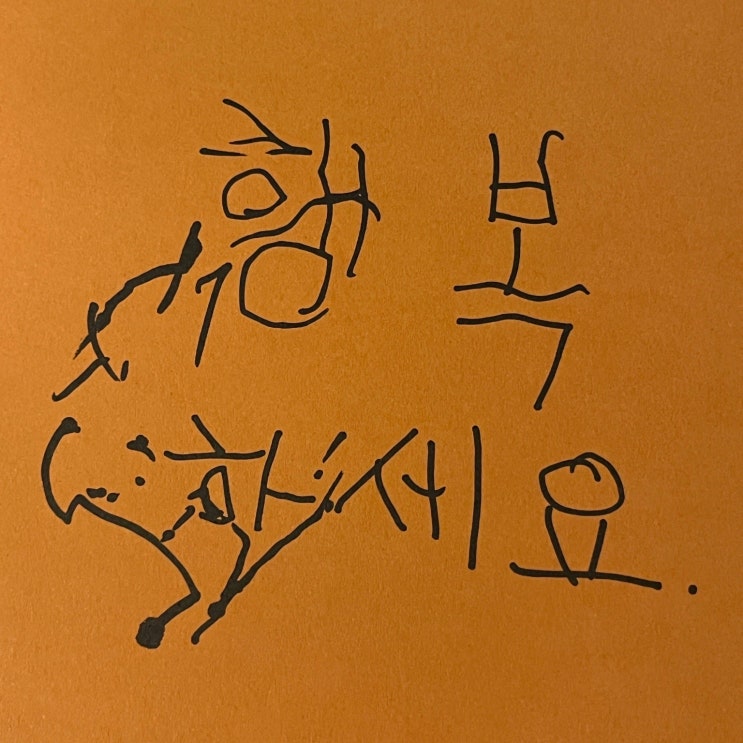 행복
하세요.